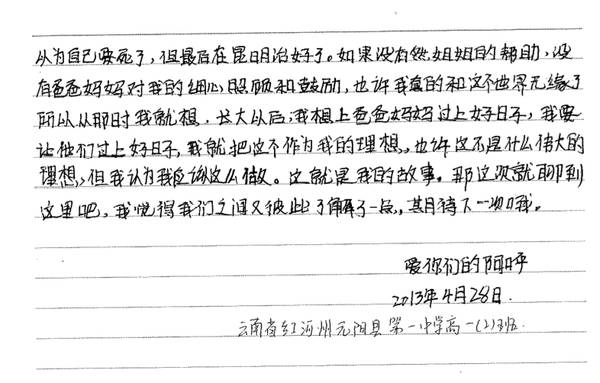 以为自己要死了，但最后在昆明治好了。如果没有然姐姐的帮助，没
有爸爸妈妈对我的细心照顾和鼓励，也许我真的和这个世界无缘了
所以从那时我就想，长大以后，我想上爸爸妈妈过上好日子，我要
让他们过上好日子，我就把这个作为我的理想，也许这不是什么伟大的
理想，但我认为我应该这么做。这就是我的故事。那这次就聊到
这里吧，我觉得我们之间又彼此了解了一点，期待下一次哦。
爱你们的阿呼
2013年4月28日.
云南省红河州元阳县第一中学高一(2)班